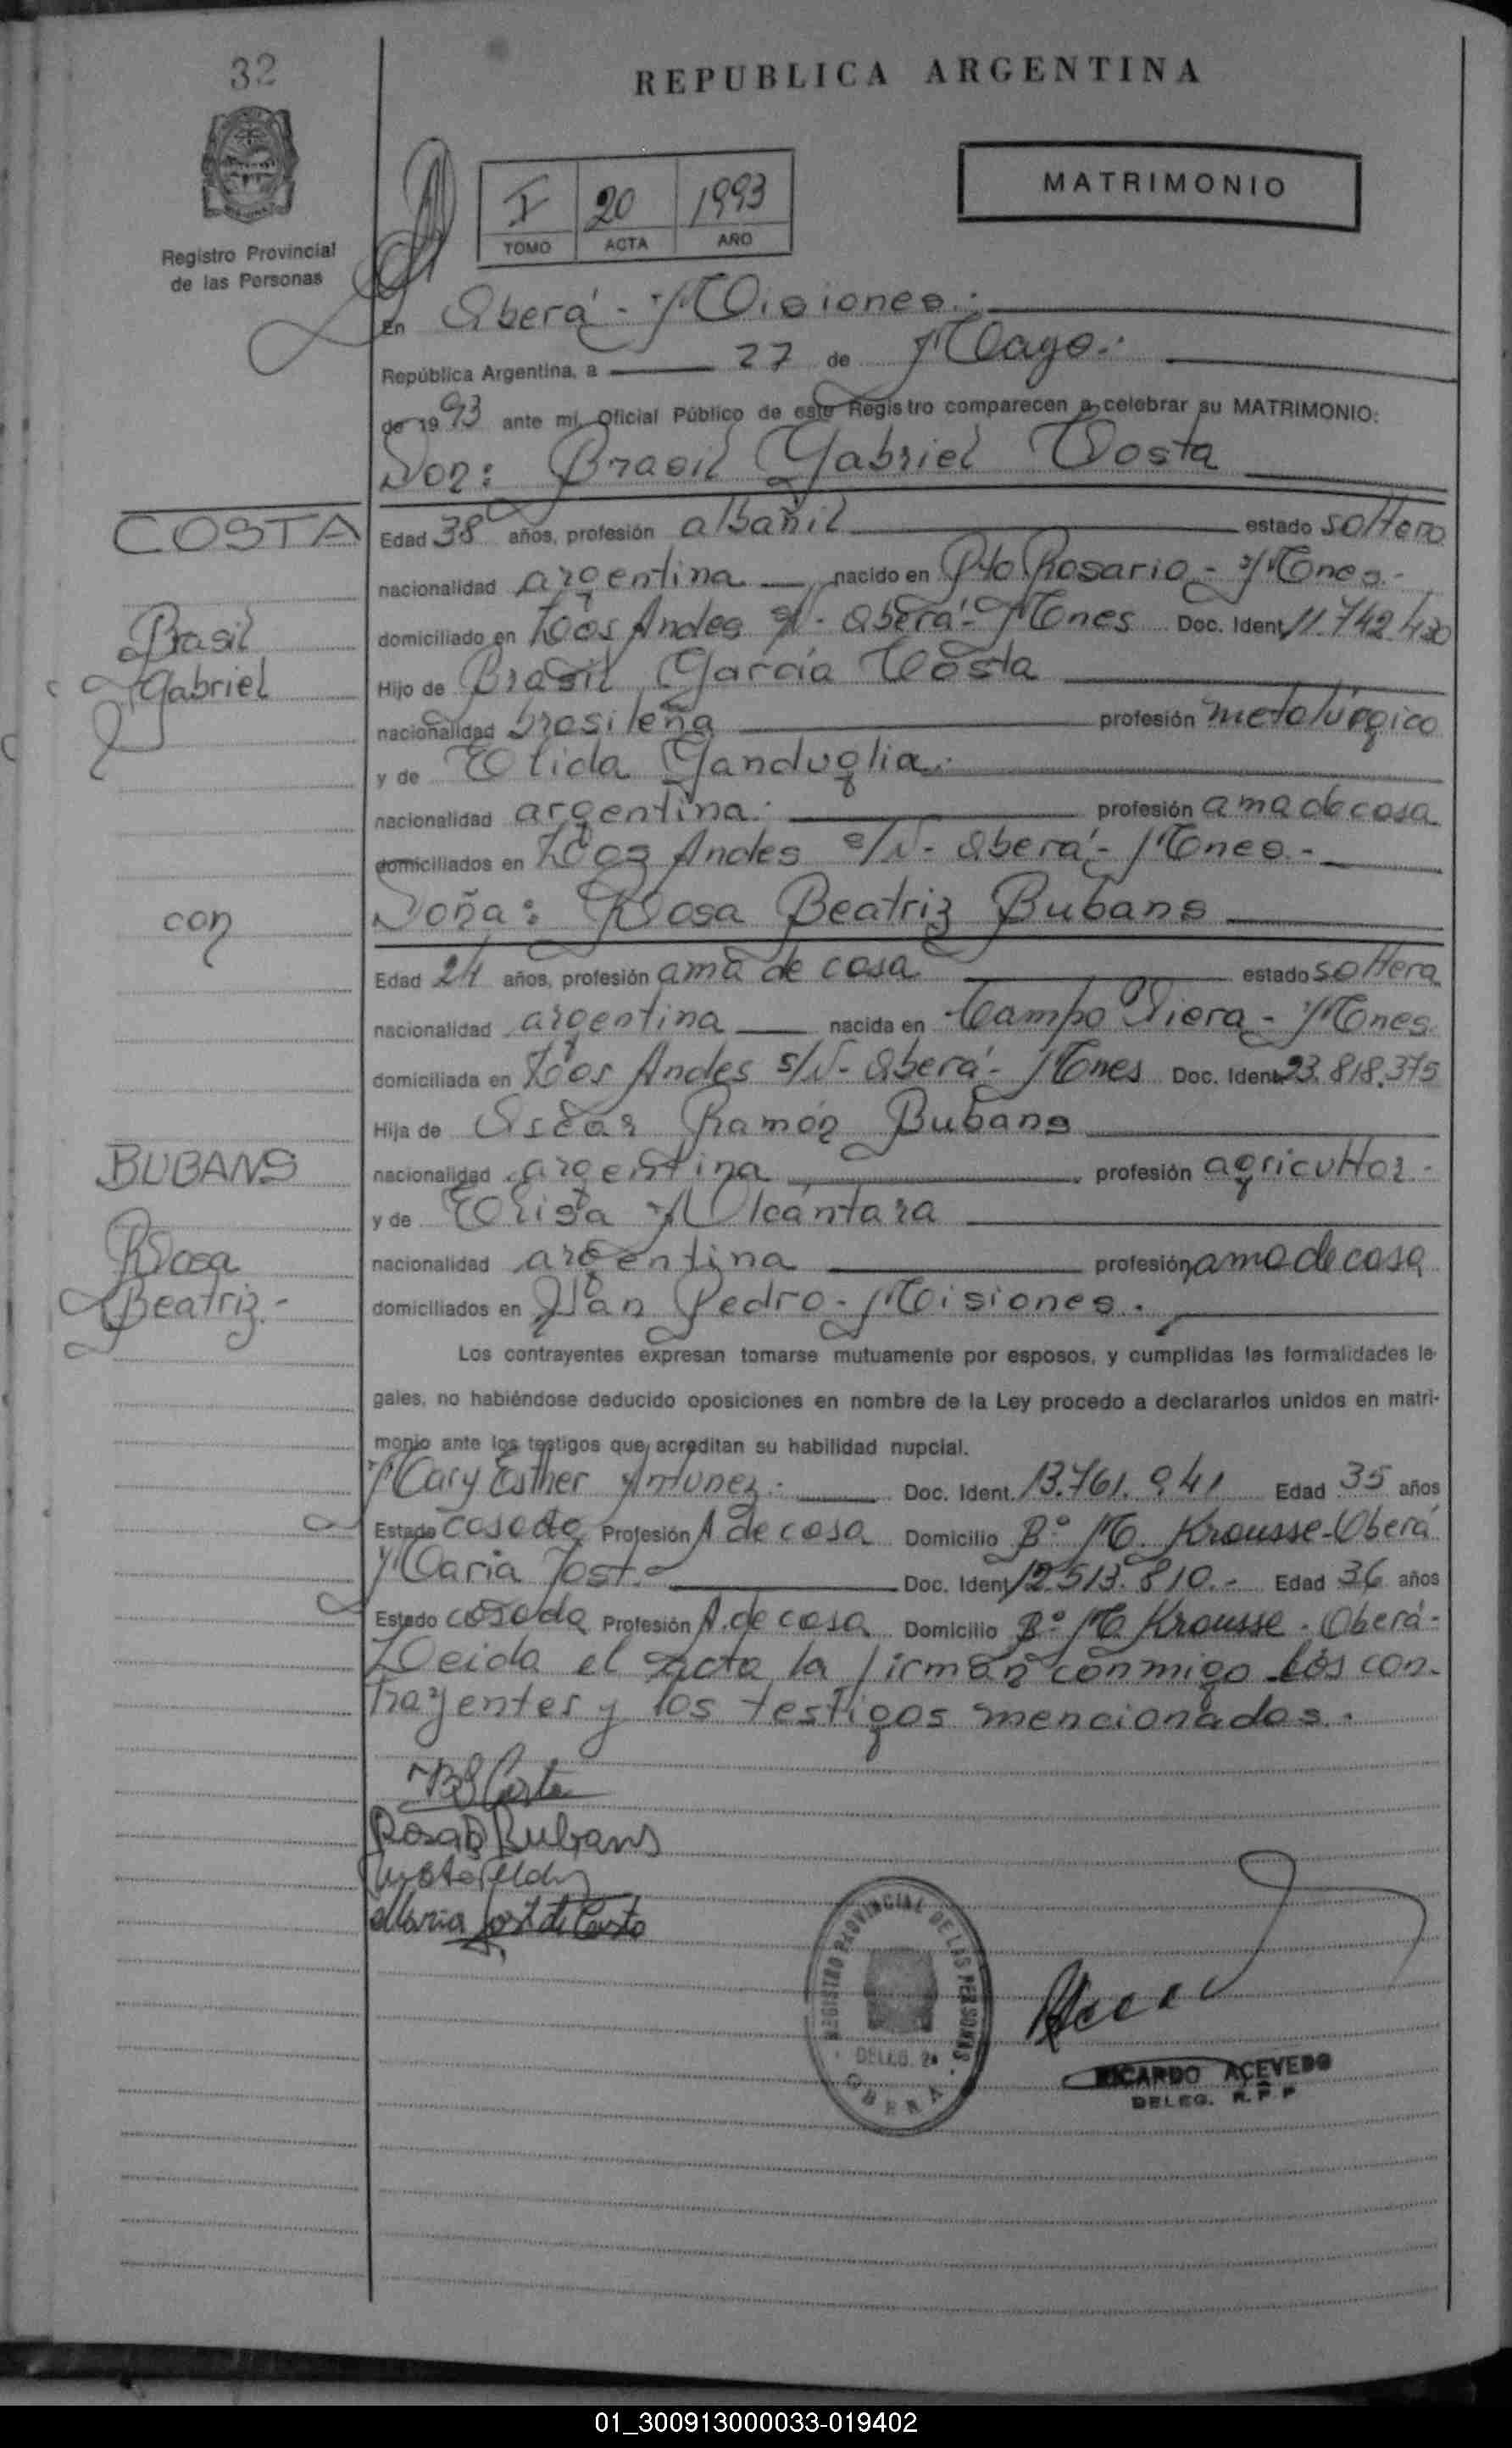 32
REPUBLICA ARGENTINA
Registro Provincial
de las Personas
I 20 1993
TOMO ACTA AÑO
MATRIMONIO
En Oberá - Misiones.-
República Argentina, a 27 de Mayo.-
de 1993 ante mí, Oficial Público de este Registro comparecen a celebrar su MATRIMONIO:
Don: Brasil Gabriel Costa
COSTA
Brasil
Gabriel
Edad 38 años, profesión albañil estado soltero
nacionalidad argentina nacido en Pto. Rosario - Mnes.-
domiciliado en Los Andes s/N - Oberá - Mnes Doc. Ident. 11.742.430
Hijo de Brasil García Costa
nacionalidad brasileña profesión metalúrgico
y de Elida Ganduglia.-
nacionalidad argentina.- profesión ama de casa
domiciliados en Los Andes s/N - Oberá - Mnes.-
con
Doña: Rosa Beatriz Bubans
Edad 24 años, profesión ama de casa estado soltera
nacionalidad argentina nacida en Campo Viera - Mnes.
domiciliada en Los Andes s/N - Oberá - Mnes Doc. Ident. 23.818.375
Hija de Oscar Ramón Bubans
BUBANS
Rosa
Beatriz.-
nacionalidad argentina profesión agricultor.-
y de Elisa Alcántara
nacionalidad argentina profesión ama de casa
domiciliados en San Pedro - Misiones.
Los contrayentes expresan tomarse mutuamente por esposos, y cumplidas las formalidades le-
gales, no habiéndose deducido oposiciones en nombre de la Ley procedo a declararlos unidos en matri-
monio ante los testigos que acreditan su habilidad nupcial.
Mary Esther Antunez.- Doc. Ident. 13.761.941 Edad 35 años
Estado casada Profesión A de casa Domicilio Bº M. Krausse - Oberá
Maria Jost.- Doc. Ident. 12.513.810.- Edad 36 años
Estado casada Profesión A. de casa Domicilio Bº M Krausse - Oberá -
Leida el acta la firman conmigo los con-
trayentes y los testigos mencionados.-
B G Costa
Rosa B Bubans
Maria Jost de Costa
REGISTRO PROVINCIAL DE LAS PERSONAS
DELEG. 2ª
OBERA
RICARDO ACEVEDO
DELEG. R.P.P
01_300913000033-019402